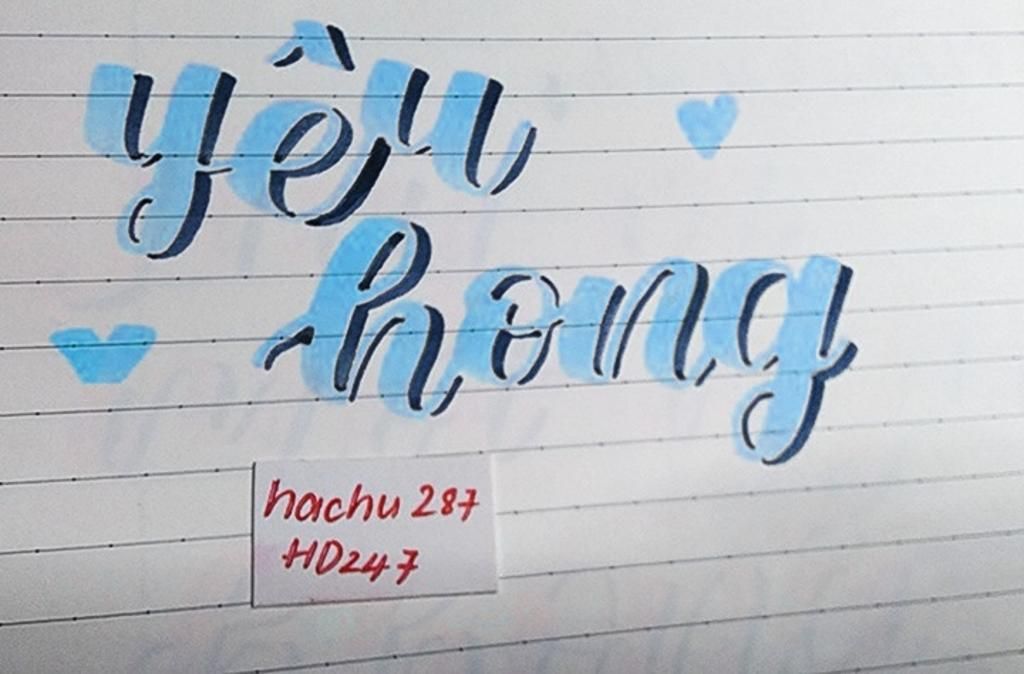 yêu
hong
hachu 287
HD247